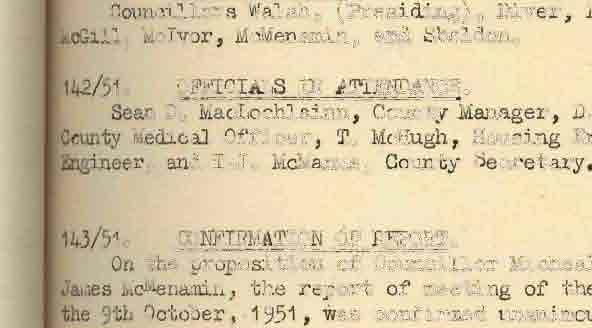 Councillors Walsh, (Presiding),
McGill, McIvor, McMenamin, and Sheldon.
142/51. OFFICIALS IN ATTENDANCE.
Sean D. MacLochlainn, County Manager, D.
County Medical Officer, T. McHugh, Housing En
Engineer, and I.J. McManus, County Secretary.
143/51. CONFIRMATION OF REPORT.
On the proposition of Councillor Micheal
James McMenamin, the report of meeting of the
the 9th October, 1951, was confirmed unanimou